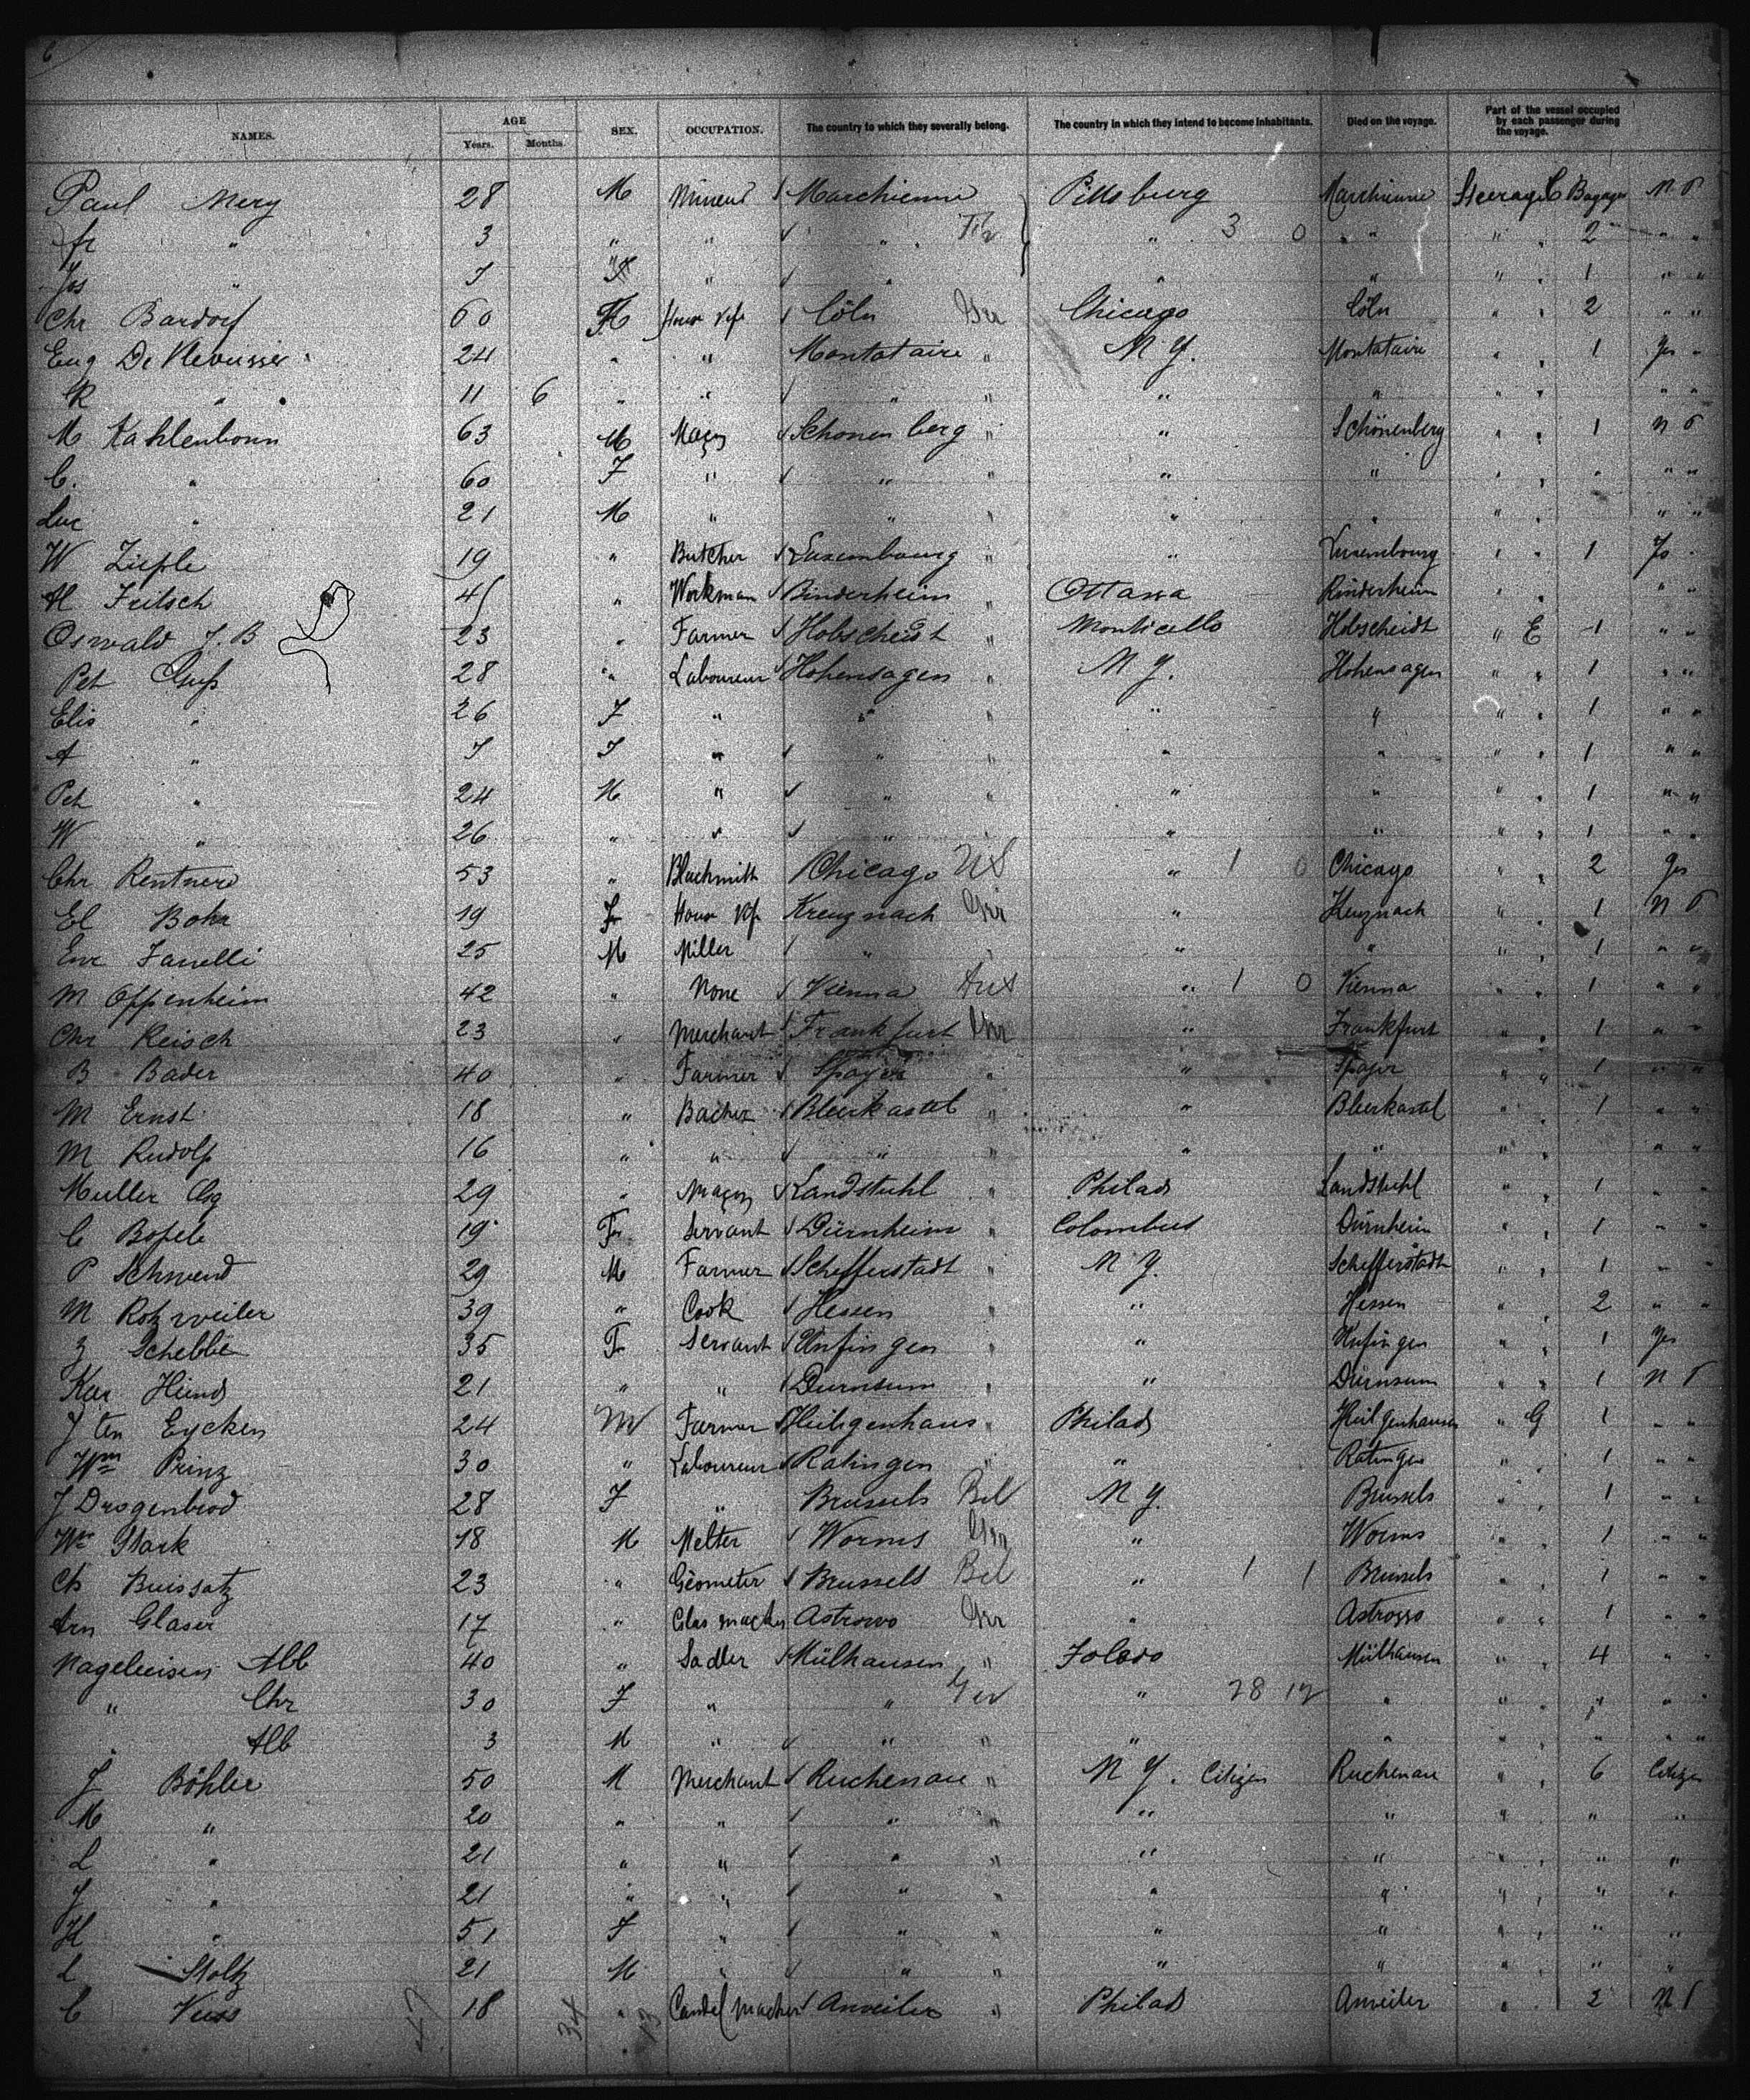 6
NAMES. AGE Years. Months. SEX. OCCUPATION. The country to which they severally belong. The country in which they intend to become inhabitants. Died on the voyage. Part of the vessel occupied by each passenger during the voyage.
Paul Mery 28 M Mineur Marchienne Pittsburg Marchienne Steerage C Bagage N O
fr " 3 " " " " 3 0 " " " 2 " "
Jos " " " " " " " 1 " "
Chr Bardorf 60 House Köln Ger Chicago Köln " " 2 " "
Eug 24 " " Montataire " N Y. Montataire " " 1 Yes "
" 11 6 " " " " " " " " " "
M Kahlenborn 63 M Maçon Schonenberg " " Schönenberg " " 1 N O
C. " 60 F " " " " " " " " " "
Luc " 21 M " " " " " " " " "
W 19 " Butcher Luxembourg " " Luxembourg " " 1
H Fritsch " Workman Binderheim " Ottawa Rinderheim " " " "
Oswald J. B 23 " Farmer Hobscheidt " Monticello Hobscheidt " E 1 " "
Pet 28 " Laboureur Hohensagen " N Y. Hohensagen " " 1 " "
Elis " 26 F " " " " " " " 1 " "
A " F " " " " " " " 1 " "
Pet " 24 M " " " " " " " 1 " "
W " 26 " " " " " " " " 1 " "
Chr Rentner 53 " Blacksmith Chicago US " 1 0 Chicago " " 2 Yes
El Bohr 19 F House Kreuznach Ger " Kreuznach " " 1 N O
Farrelli 25 M Miller " " " " " " 1 " "
M Oppenheim 42 " None Vienna Aus " 1 0 Vienna " " 1 " "
Chr Reisch 23 " Merchant Frankfurt Ger " Frankfurt " " 1 " "
B Bader 40 " Farmer " " " " 1 " "
M Ernst 18 " Backer Blieskastel " " Blieskastel " " 1 " "
M Rudolf 16 " " " " " " " " " "
Muller 29 " Maçon Landstuhl " Philad Landstuhl " " 1 " "
C 19 F Servant Dürnheim " Colombus Dürnheim " " 1 " "
P Schwend 29 M Farmer Schefferstadt " N Y. Schefferstadt " " 1 " "
M Rotzweiler 39 " Cook Hessen " " Hessen " " 2 " "
Scheblie 35 F Servant Hufingen " " Hufingen " " 1 Yes
21 " " Durnsum " " Dürnsum " " 1 N O
J ten Eycken 24 M Farmer Heiligenhaus " Philad " G 1 " "
Wm Prinz 30 " Laboureur Ratingen " " Ratingen " " 1 " "
J Drogenbrod 28 F " Brussels Bel N Y. Brussels " " 1 " "
Wm Stark 18 M Melter Worms Ger " Worms " " 1 " "
Ch Buissatz 23 " Géometer Brussels Bel " 1 1 Brussels " " 1 " "
Arn Glaser 17 " Glas macker Astrowo Ger " " " 1 " "
Nageleisen Alb 40 " Sadler Mülhausen " Toledo Mülhausen " " 4 " "
" Chr 30 F " " Ger " 28 12 " " " " " "
" Alb 3 M " " " " " " " " " "
J Böhler 50 M Merchant Ruchenau " N Y. Citizen Ruchenau " " 6 Citizen
M " 20 " " " " " " " " " "
L " 21 " " " " " " " " " "
J " 21 " " " " " " " " " "
H " 51 F " " " " " " " " "
L Stoltz 21 M " " " " " " " " "
C 18 " Candel macher Anweiler " Philad Anweiler " " 2 N O
47 34 13